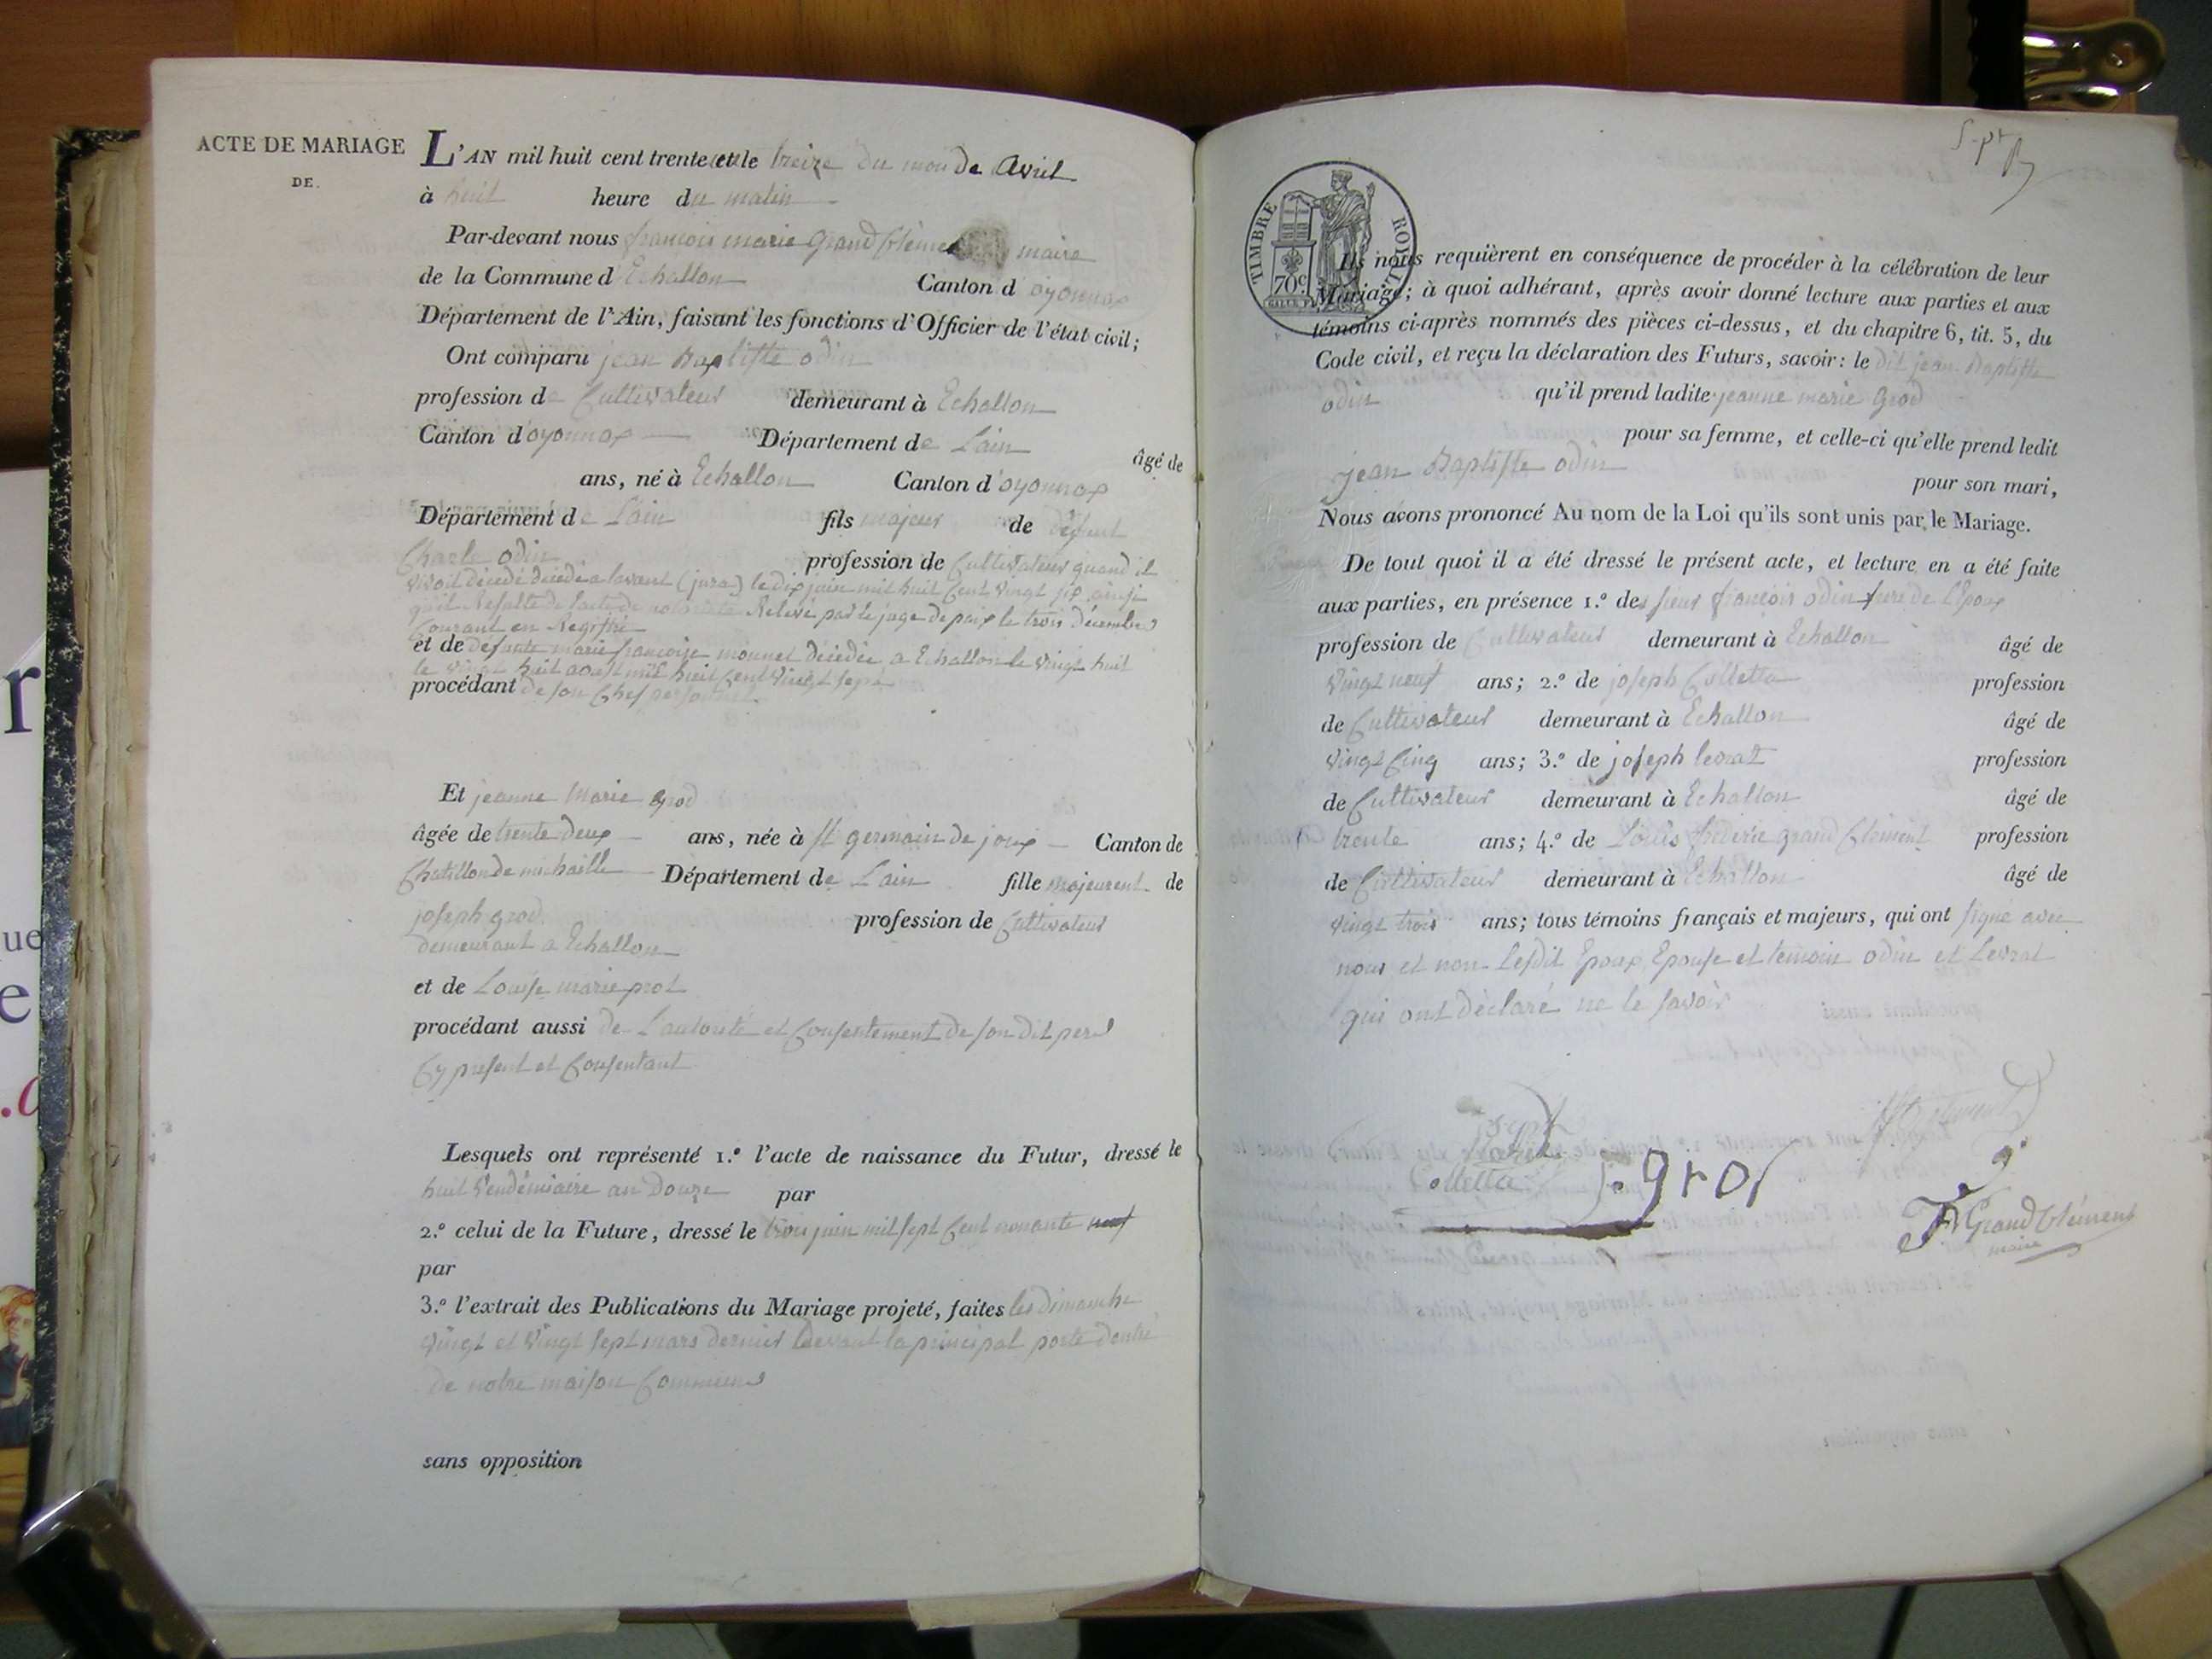 ACTE DE MARIAGE
DE.
L'AN mil huit cent trente et le treize du moi de Avril
à huit heure du matin
Par-devant nous francois marie Grand Clément maire
de la Commune d'Echallon Canton d'oyonnax
Département de l'Ain, faisant les fonctions d'Officier de l'état civil;
Ont comparu jean Baptiste odin
profession de Cultivateur demeurant à Echallon
Canton d'oyonnax Département de Lain âgé de
ans, né à Echallon Canton d'oyonnax
Département de Lain fils majeur de défunt
Charle odin profession de Cultivateur quand il
vivoit décédé décédé a lavant (jura) le dix juin mil huit Cent vingt six ainsi
quil Resulte de lacte de notoriété Relevé par le juge de paix le trois décembre
Courant en Regittré
et de défunte marie francoise monnet décédée a Echallon le vingt huit
le vingt huit aoust mil huit Cent vingt sept
procédant de son Chef personnel
Et jeanne Marie grod
âgée de trente deux ans, née à st germain de joux Canton de
Chatillon de michaille Département de Lain fille majeurent de
joseph grod profession de Cultivateur
demeurant a Echallon
et de Louise marie prot
procédant aussi de Lautorité et Consentement de son dit pere
Cy present et Consentant
Lesquels ont représenté 1.º l'acte de naissance du Futur, dressé le
huit Vendémiaire an Douze par
2.º celui de la Future, dressé le trois juin mil sept Cent nonante neuf
par
3.º l'extrait des Publications du Mariage projeté, faites les dimanche
vingt et vingt sept mars dernier devant la principal porte dentré
de notre maison Commune
sans opposition
TIMBRE ROYAL
70c
Ils nous requièrent en conséquence de procéder à la célébration de leur
Mariage; à quoi adhérant, après avoir donné lecture aux parties et aux
témoins ci-après nommés des pièces ci-dessus, et du chapitre 6, tit. 5, du
Code civil, et reçu la déclaration des Futurs, savoir: le dit jean Baptiste
odin qu'il prend ladite jeanne marie Grod
pour sa femme, et celle-ci qu'elle prend ledit
jean Baptiste odin pour son mari,
Nous avons prononcé Au nom de la Loi qu'ils sont unis par le Mariage.
De tout quoi il a été dressé le présent acte, et lecture en a été faite
aux parties, en présence 1.º des sieur francois odin frere de L'Epoux
profession de Cultivateur demeurant à Echallon âgé de
vingt neuf ans; 2.º de joseph Colletta profession
de Cultivateur demeurant à Echallon âgé de
vingt Cinq ans; 3.º de joseph levrat profession
de Cultivateur demeurant à Echallon âgé de
trente ans; 4.º de Louis frederic grand Clement profession
de Cultivateur demeurant à Echallon âgé de
vingt trois ans; tous témoins français et majeurs, qui ont signé avec
nous et non Lesdit Epoux, Epouse et temoin odin et Levrat
qui ont déclaré ne le savoir
Colletta
j. grod
Grand Clément
maire